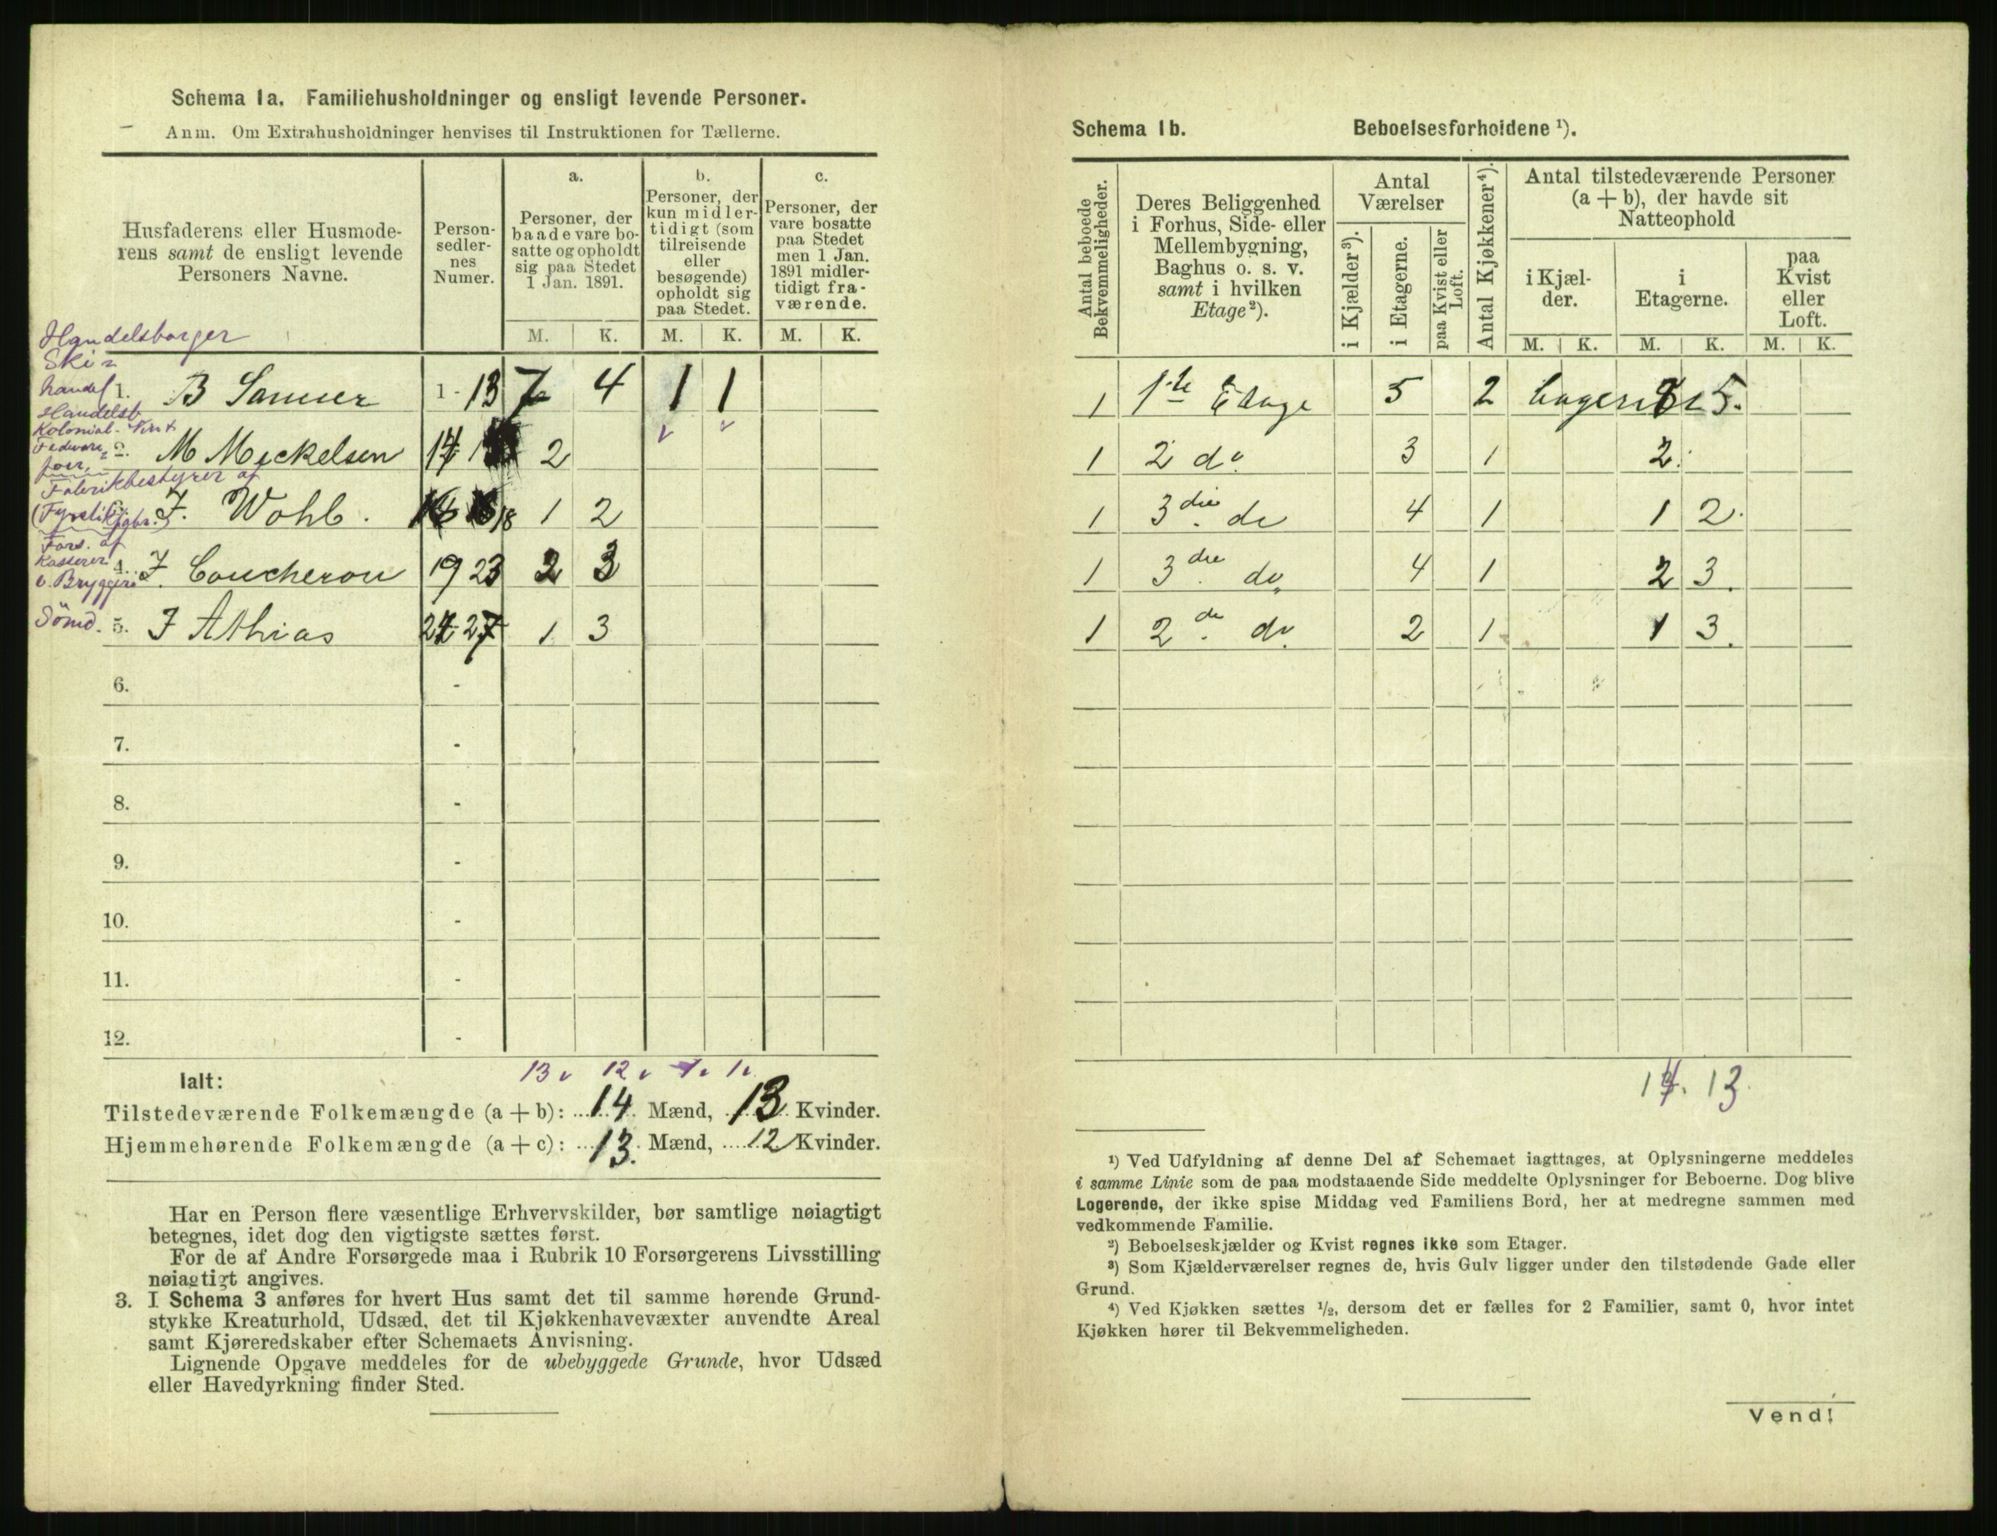 Schema 1a. Familiehusholdninger og ensligt levende Personer.
Anm. Om Extrahusholdninger henvises til Instruktionen for Tællerne.
Husfaderens eller Husmoderens samt de ensligt levende Personers Navne.
Personsedlernes Numer.
a.
Personer, der baade vare bosatte og opholdt sig paa Stedet 1 Jan. 1891.
b.
Personer, der kun midlertidigt (som tilreisende eller besøgende) opholdt sig paa Stedet.
c.
Personer, der vare bosatte paa Stedet men 1 Jan. 1891 midlertidigt fraværende.
M. K. M. K. M. K.
Handelsborger
Ski
handel
1. B Sanner 1 - 13 7 4 1 1
Handelsb.
Kolonial-
2. M Meckelsen 14 2
Fabrikbestyrer af
3. J. Wohb. 18 1 2
Fors. af
Kasserer
v. Bryggeri
4. J. Coucheron 19 23 2 3
Sömd.
5. J Athias 24 27 1 3
6. -
7. -
8. -
9. -
10. -
11. -
12. -
13 12 1 1
Ialt:
Tilstedeværende Folkemængde (a + b): 14 Mænd, 13 Kvinder.
Hjemmehørende Folkemængde (a + c): 13. Mænd, 12 Kvinder.
Har en Person flere væsentlige Erhvervskilder, bør samtlige nøiagtigt
betegnes, idet dog den vigtigste sættes først.
For de af Andre Forsørgede maa i Rubrik 10 Forsørgerens Livsstilling
nøiagtigt angives.
3. I Schema 3 anføres for hvert Hus samt det til samme hørende Grund-
stykke Kreaturhold, Udsæd, det til Kjøkkenhavevæxter anvendte Areal
samt Kjøreredskaber efter Schemaets Anvisning.
Lignende Opgave meddeles for de ubebyggede Grunde, hvor Udsæd
eller Havedyrkning finder Sted.
Schema 1b. Beboelsesforholdene ¹).
Antal beboede Bekvemmeligheder.
Deres Beliggenhed i Forhus, Side- eller Mellembygning, Baghus o. s. v. samt i hvilken Etage ²).
Antal Værelser
i Kjælder ³).
i Etagerne.
paa Kvist eller Loft.
Antal Kjøkkener ⁴).
Antal tilstedeværende Personer (a + b), der havde sit Natteophold
i Kjælder.
i Etagerne.
paa Kvist eller Loft.
M. K. M. K. M. K.
1 1ste Etage 5 2 8 5.
1 2 do 3 1 2.
1 3die do 4 1 1 2.
1 3die do. 4 1 2 3.
1 2de do. 2 1 1 3.
14. 13.
¹) Ved Udfyldning af denne Del af Schemaet iagttages, at Oplysningerne meddeles
i samme Linie som de paa modstaaende Side meddelte Oplysninger for Beboerne. Dog blive
Logerende, der ikke spise Middag ved Familiens Bord, her at medregne sammen med
vedkommende Familie.
²) Beboelseskjælder og Kvist regnes ikke som Etager.
³) Som Kjælderværelser regnes de, hvis Gulv ligger under den tilstødende Gade eller
Grund.
⁴) Ved Kjøkken sættes ½, dersom det er fælles for 2 Familier, samt 0, hvor intet
Kjøkken hører til Bekvemmeligheden.
Vend!